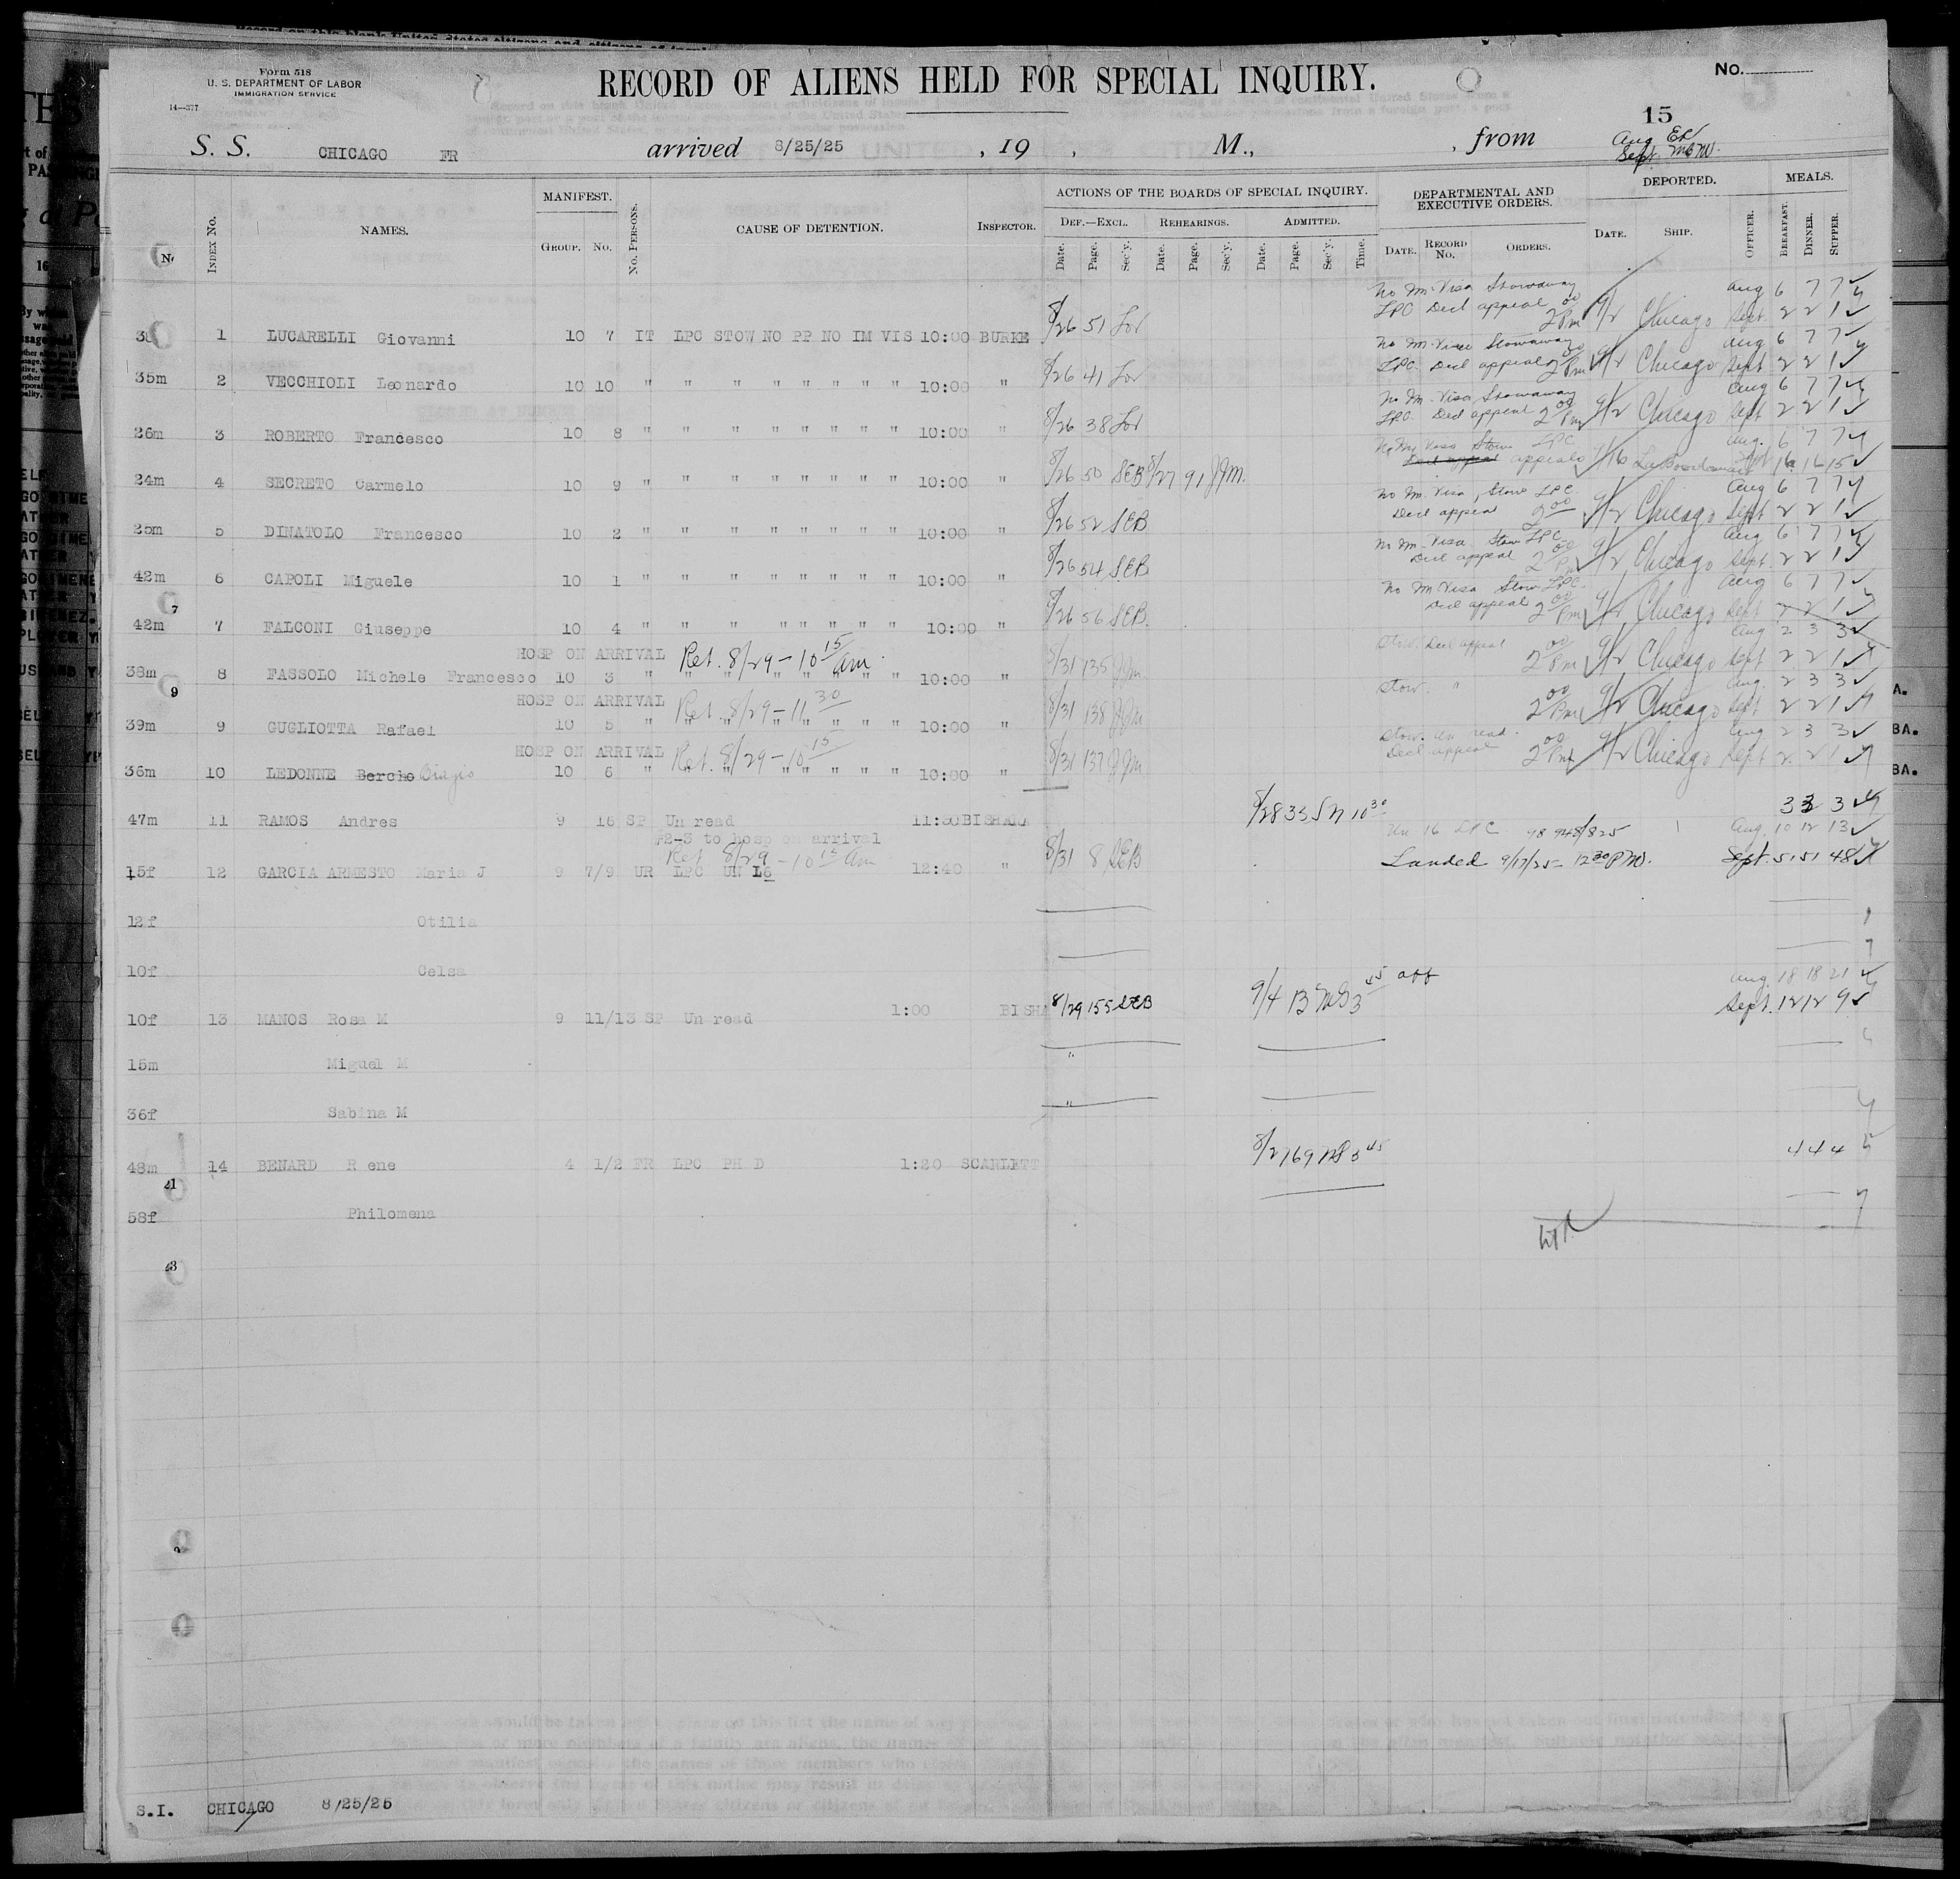 Form 518
U. S. DEPARTMENT OF LABOR
IMMIGRATION SERVICE
14—377
RECORD OF ALIENS HELD FOR SPECIAL INQUIRY.
No.
15
S. S. CHICAGO FR arrived 8/25/25 , 19 , M., , from
Aug
Sept.
INDEX No.
NAMES.
MANIFEST.
GROUP. No.
No. PERSONS.
CAUSE OF DETENTION.
INSPECTOR.
ACTIONS OF THE BOARDS OF SPECIAL INQUIRY.
DEF.—EXCL. REHEARINGS. ADMITTED.
Date. Page. Sec'y. Date. Page. Sec'y. Date. Page. Sec'y. Time.
DEPARTMENTAL AND EXECUTIVE ORDERS.
DATE. RECORD No. ORDERS.
DEPORTED.
DATE. SHIP. OFFICER.
MEALS.
BREAKFAST. DINNER. SUPPER.
No Im. Visa Stowaway Aug 6 7 7
LPC Decl appeal 2 00 Pm 9/2 Chicago Sept. 2 2 1
1 LUCARELLI Giovanni 10 7 IT LPC STOW NO PP NO IM VIS 10:00 BURKE 8/26 51 Lor
No Im. Visa Stowaway Aug 6 7 7
LPC. Decl appeal 2 00 Pm 9/2 Chicago Sept 2 2 1
35m 2 VECCHIOLI Leonardo 10 10 " " " " " " " " 10:00 " 8/26 41 Lor
No Im. Visa Stowaway Aug 6 7 7
LPC. Decl appeal 2 00 Pm 9/2 Chicago Sept 2 2 1
26m 3 ROBERTO Francesco 10 8 " " " " " " " " 10:00 " 8/26 38 Lor
No Im. Visa Stow LPC Aug. 6 7 7
Decl appeal appeals 9/16 Sept 16 16 15
24m 4 SECRETO Carmelo 10 9 " " " " " " " " 10:00 " 8/26 50 SEB 8/27 91 JJM.
No Im. Visa, Stow LPC Aug 6 7 7
Decl appeal 2 00 9/2 Chicago Sept 2 2 1
25m 5 DINATOLO Francesco 10 2 " " " " " " " " 10:00 " 8/26 52 SEB
No Im. Visa. Stow LPC Aug 6 7 7
Decl appeal 2 00 Pm 9/2 Chicago Sept. 2 2 1
42m 6 CAPOLI Miguele 10 1 " " " " " " " " 10:00 " 8/26 54 SEB
No Im Visa Stow LPC. Aug 6 7 7
Decl appeal 2 00 Pm 9/2 Chicago Sept 2 2 1
42m 7 FALCONI Giuseppe 10 4 " " " " " " " " 10:00 " 8/26 56 SEB.
HOSP ON ARRIVAL Ret. 8/29 - 10 15 am. Stow. Decl appeal Aug 2 3 3
38m 8 FASSOLO Michele Francesco 10 3 " " " " " " " " 10:00 " 8/31 135 JJM 2 00 Pm 9/2 Chicago Sept 2 2 1
HOSP ON ARRIVAL Ret. 8/29 - 11 30 Stow. " Aug. 2 3 3
39m 9 GUGLIOTTA Rafael 10 5 " " " " " " " " 10:00 " 8/31 138 JJM 2 00 Pm 9/2 Chicago Sept 2 2 1
HOSP ON ARRIVAL Ret. 8/29 - 10 15 Stow. un read. Aug 2 3 3
Decl appeal
36m 10 LEDONNE Bercho Biagio 10 6 " " " " " " " " 10:00 " 8/31 137 JJM 2 00 Pm 9/2 Chicago Sept 2 2 1
47m 11 RAMOS Andres 9 16 SP Un read 11:30 BISHARA 8/28 33 10 30 3 3 3
#2-3 to hosp on arrival
Ret 8/29 - 10 15 am Un 16 LPC Aug. 10 12 13
15f 12 GARCIA ARMESTO Maria J 9 7/9 UR LPC UN 16 12:40 " 8/31 8 SEB Landed 9/17/25 - 12 30 PM. Sept. 51 51 48
12f Otilia
10f Celsa
Aug. 18 18 21
10f 13 MANOS Rosa M 9 11/13 SP Un read 1:00 BISHA 8/29 155 SEB 9/4 13 Sept. 12 12 9
15m Miguel M "
36f Sabina M "
48m 14 BENARD Rene 4 1/2 FR LPC PH D 1:20 SCARLETT 8/27 4 4 4
58f Philomena
S.I. CHICAGO 8/25/25